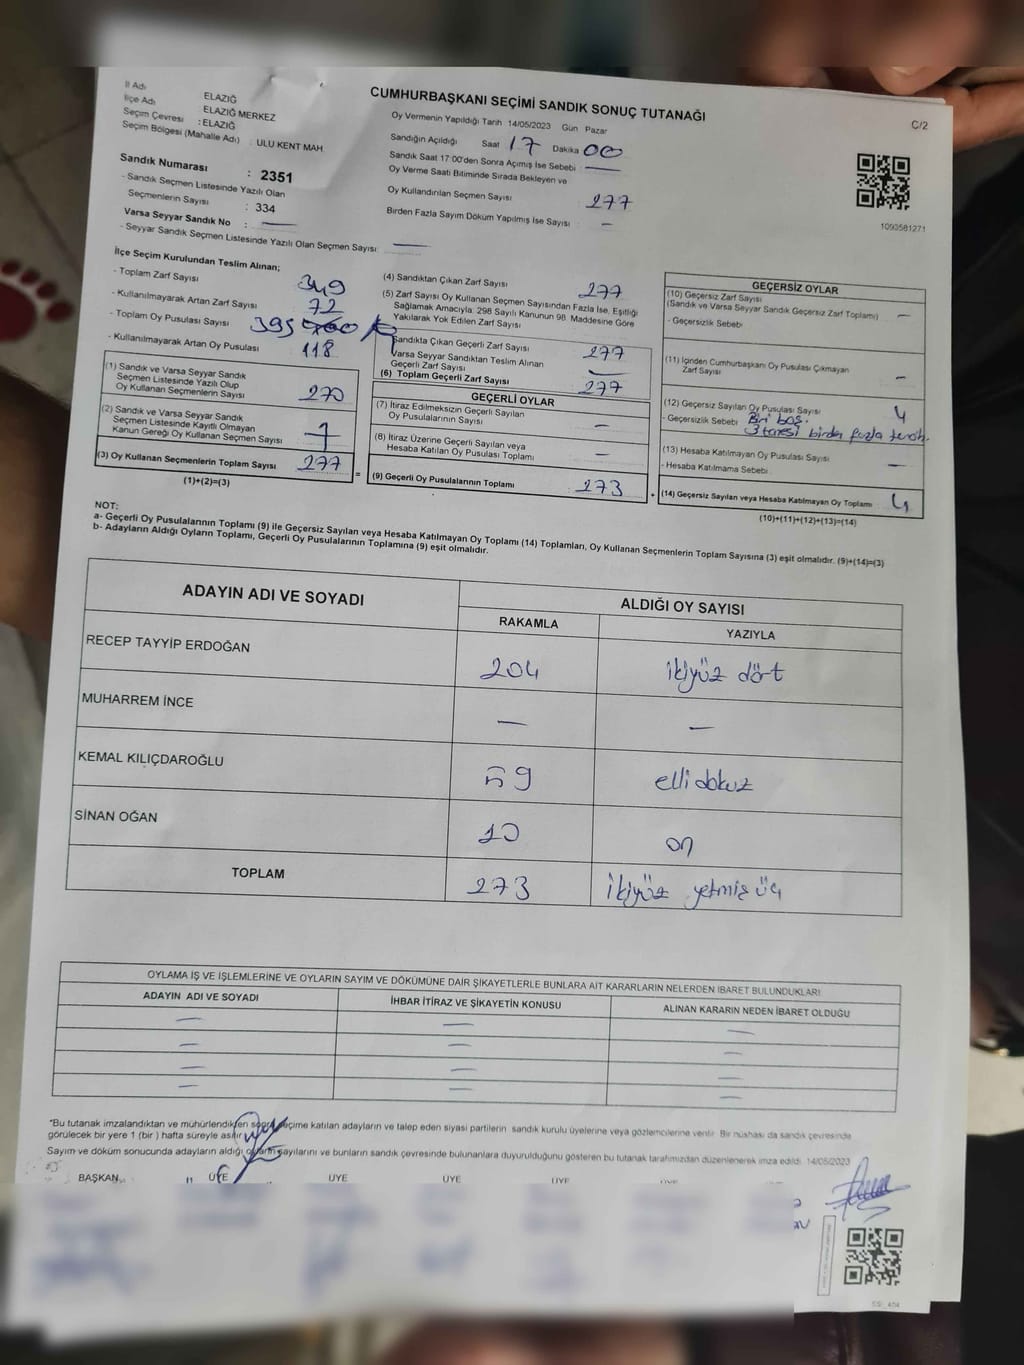 CUMHURBAŞKANI SEÇİMİ SANDIK SONUÇ TUTANAĞI
C/2
İl Adı ELAZIĞ
İlçe Adı : ELAZIĞ MERKEZ
Seçim Çevresi : ELAZIĞ
Seçim Bölgesi (Mahalle Adı) : ULU KENT MAH
Sandık Numarası : 2351
- Sandık Seçmen Listesinde Yazılı Olan
Seçmenlerin Sayısı : 334
Varsa Seyyar Sandık No : —
- Seyyar Sandık Seçmen Listesinde Yazılı Olan Seçmen Sayısı : —
Oy Vermenin Yapıldığı Tarih 14/05/2023 Gün Pazar
Sandığın Açıldığı Saat 17 Dakika 00
Sandık Saat 17:00'den Sonra Açımış İse Sebebi : —
Oy Verme Saati Bitiminde Sırada Bekleyen ve
Oy Kullandırılan Seçmen Sayısı : 277
Birden Fazla Sayım Döküm Yapılmış İse Sayısı : —
1093581271
İlçe Seçim Kurulundan Teslim Alınan;
- Toplam Zarf Sayısı 349
- Kullanılmayarak Artan Zarf Sayısı : 72
- Toplam Oy Pusulası Sayısı 395
- Kullanılmayarak Artan Oy Pusulası 118
(1) Sandık ve Varsa Seyyar Sandık
Seçmen Listesinde Yazılı Olup
Oy Kullanan Seçmenlerin Sayısı : 270
(2) Sandık ve Varsa Seyyar Sandık
Seçmen Listesinde Kayıtlı Olmayan
Kanun Gereği Oy Kullanan Seçmen Sayısı : 7
(3) Oy Kullanan Seçmenlerin Toplam Sayısı : 277
(1)+(2)=(3)
=
(4) Sandıktan Çıkan Zarf Sayısı : 277
(5) Zarf Sayısı Oy Kullanan Seçmen Sayısından Fazla İse, Eşitliği
Sağlamak Amacıyla; 298 Sayılı Kanunun 98. Maddesine Göre
Yakılarak Yok Edilen Zarf Sayısı :
Sandıkta Çıkan Geçerli Zarf Sayısı : 277
Varsa Seyyar Sandıktan Teslim Alınan
Geçerli Zarf Sayısı : —
(6) Toplam Geçerli Zarf Sayısı : 277
GEÇERLİ OYLAR
(7) İtiraz Edilmeksizin Geçerli Sayılan
Oy Pusulalarının Sayısı : —
(8) İtiraz Üzerine Geçerli Sayılan veya
Hesaba Katılan Oy Pusulası Toplamı : —
(9) Geçerli Oy Pusulalarının Toplamı : 273
+
GEÇERSİZ OYLAR
(10) Geçersiz Zarf Sayısı
(Sandık ve Varsa Seyyar Sandık Geçersiz Zarf Toplamı) : —
- Geçersizlik Sebebi :
(11) İçinden Cumhurbaşkanı Oy Pusulası Çıkmayan
Zarf Sayısı : —
(12) Geçersiz Sayılan Oy Pusulası Sayısı : 4
- Geçersizlik Sebebi : Biri boş.
3 tanesi birden fazla tercih.
(13) Hesaba Katılmayan Oy Pusulası Sayısı : —
- Hesaba Katılmama Sebebi :
(14) Geçersiz Sayılan veya Hesaba Katılmayan Oy Toplamı : 4
(10)+(11)+(12)+(13)=(14)
NOT:
a- Geçerli Oy Pusulalarının Toplamı (9) ile Geçersiz Sayılan veya Hesaba Katılmayan Oy Toplamı (14) Toplamları, Oy Kullanan Seçmenlerin Toplam Sayısına (3) eşit olmalıdır. (9)+(14)=(3)
b- Adayların Aldığı Oyların Toplamı, Geçerli Oy Pusulalarının Toplamına (9) eşit olmalıdır.
ADAYIN ADI VE SOYADI ALDIĞI OY SAYISI
RAKAMLA YAZIYLA
RECEP TAYYİP ERDOĞAN 204 ikiyüz dört
MUHARREM İNCE — —
KEMAL KILIÇDAROĞLU 59 elli dokuz
SİNAN OĞAN 10 on
TOPLAM 273 ikiyüz yetmiş üç
OYLAMA İŞ VE İŞLEMLERİNE VE OYLARIN SAYIM VE DÖKÜMÜNE DAİR ŞİKAYETLERLE BUNLARA AİT KARARLARIN NELERDEN İBARET BULUNDUKLARI
ADAYIN ADI VE SOYADI İHBAR İTİRAZ VE ŞİKAYETİN KONUSU ALINAN KARARIN NEDEN İBARET OLDUĞU
— — —
— — —
— — —
— — —
*Bu tutanak imzalandıktan ve mühürlendikten sonra seçime katılan adayların ve talep eden siyasi partilerin sandık kurulu üyelerine veya gözlemcilerine verilir. Bir nüshası da sandık çevresinde
görülecek bir yere 1 (bir) hafta süreyle asılır.
Sayım ve döküm sonucunda adayların aldığı oyların sayılarını ve bunların sandık çevresinde bulunanlara duyurulduğunu gösteren bu tutanak tarafımızdan düzenlenerek imza edildi. 14/05/2023
BAŞKAN ÜYE ÜYE ÜYE ÜYE ÜYE